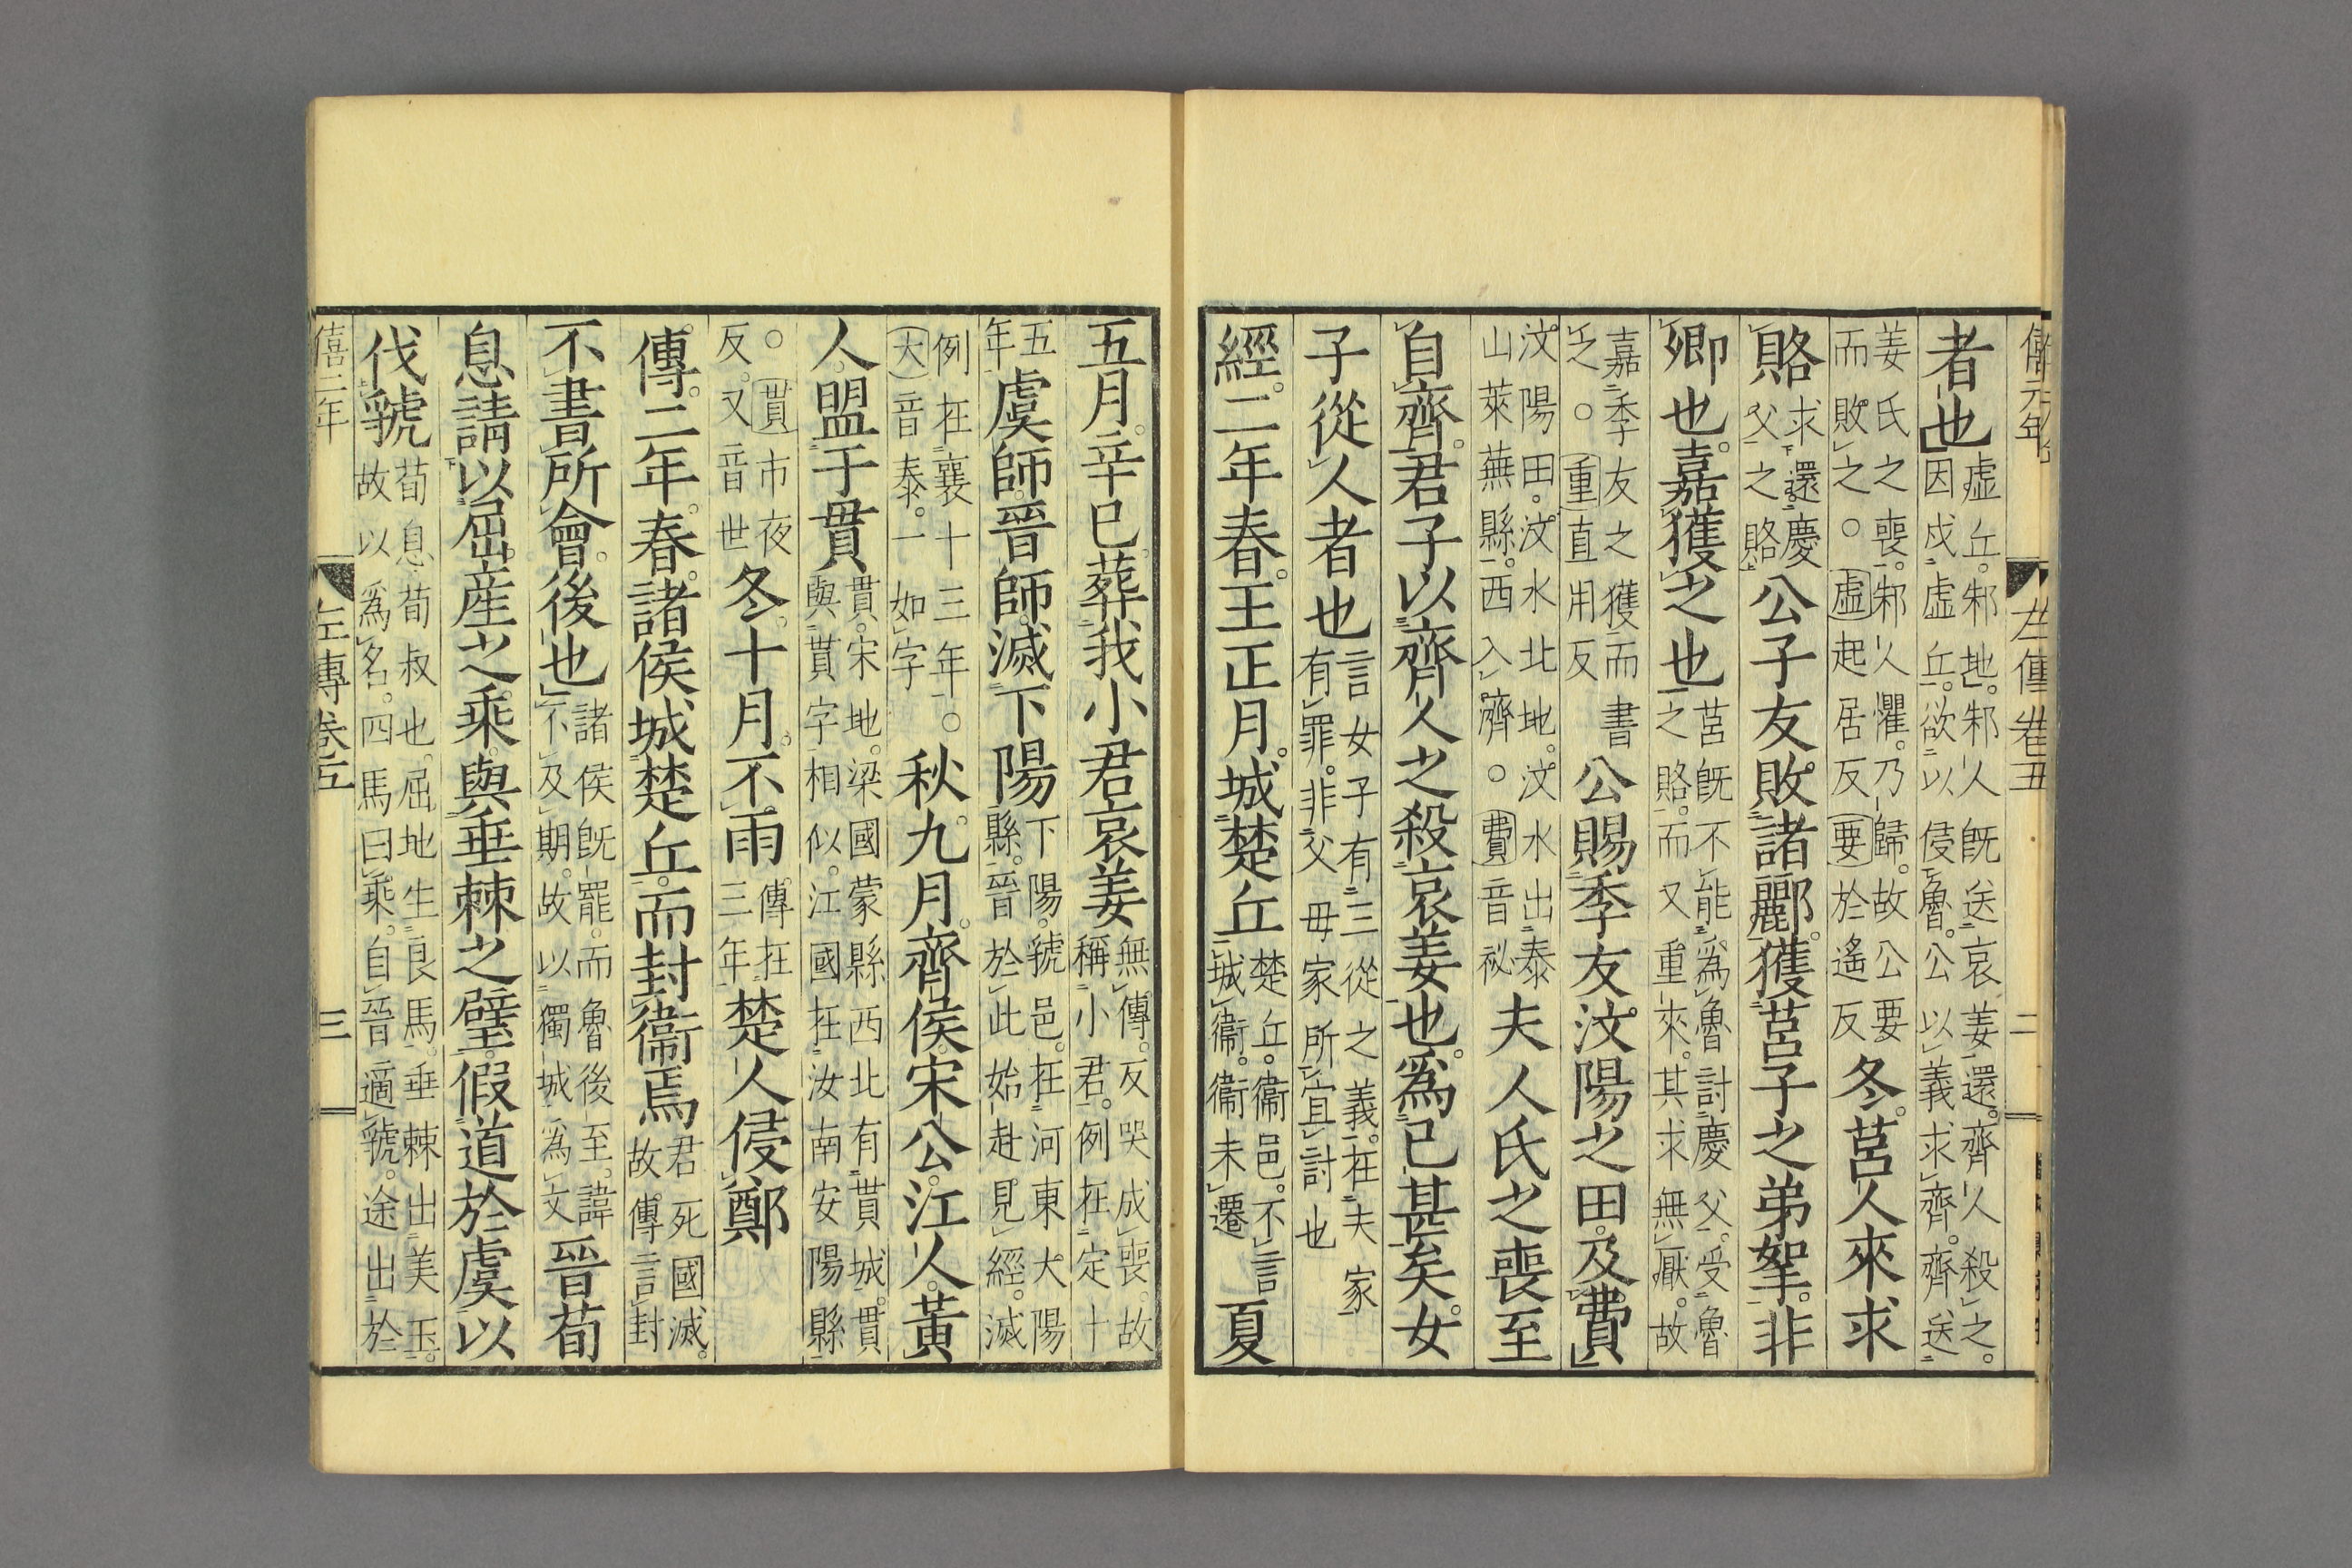 僖元年 左傳卷五 二
者也虛丘邾地邾人旣送哀姜還齊人殺之因戍虛丘欲以侵魯公以義求齊齊送
姜氏之喪邾人懼乃歸故公要而敗之○虛起居反要於遙反冬莒人來求
賂求還慶父之賂公子友敗諸酈獲莒子之弟挐非
卿也嘉獲之也莒旣不能爲魯討慶父受魯之賂而又重來其求無厭故
嘉季友之獲而書之○重直用反公賜季友汶陽之田及費
汶陽田汶水北地汶水出泰山萊蕪縣西入濟○費音祕夫人氏之喪至
自齊君子以齊人之殺哀姜也爲已甚矣女
子從人者也言女子有三從之義在夫家有罪非父母家所宜討也
經二年春王正月城楚丘楚丘衞邑不言城衞衞未遷夏
五月辛巳葬我小君哀姜無傳反哭成喪故稱小君例在定十
五年虞師晉師滅下陽下陽虢邑在河東大陽縣晉於此始赴見經滅
例在襄十三年○大音泰一如字秋九月齊侯宋公江人黃
人盟于貫貫宋地梁國蒙縣西北有貰城貫與貰字相似江國在汝南安陽縣
○貰市夜反又音世冬十月不雨傳在三年楚人侵鄭
傳二年春諸侯城楚丘而封衞焉君死國滅故傳言封
不書所會後也諸侯旣罷而魯後至諱不及期故以獨城爲文晉荀
息請以屈產之乘與垂棘之璧假道於虞以
伐虢荀息荀叔也屈地生良馬垂棘出美玉故以爲名四馬曰乘自晉適虢途出於
僖二年 左傳卷五 三